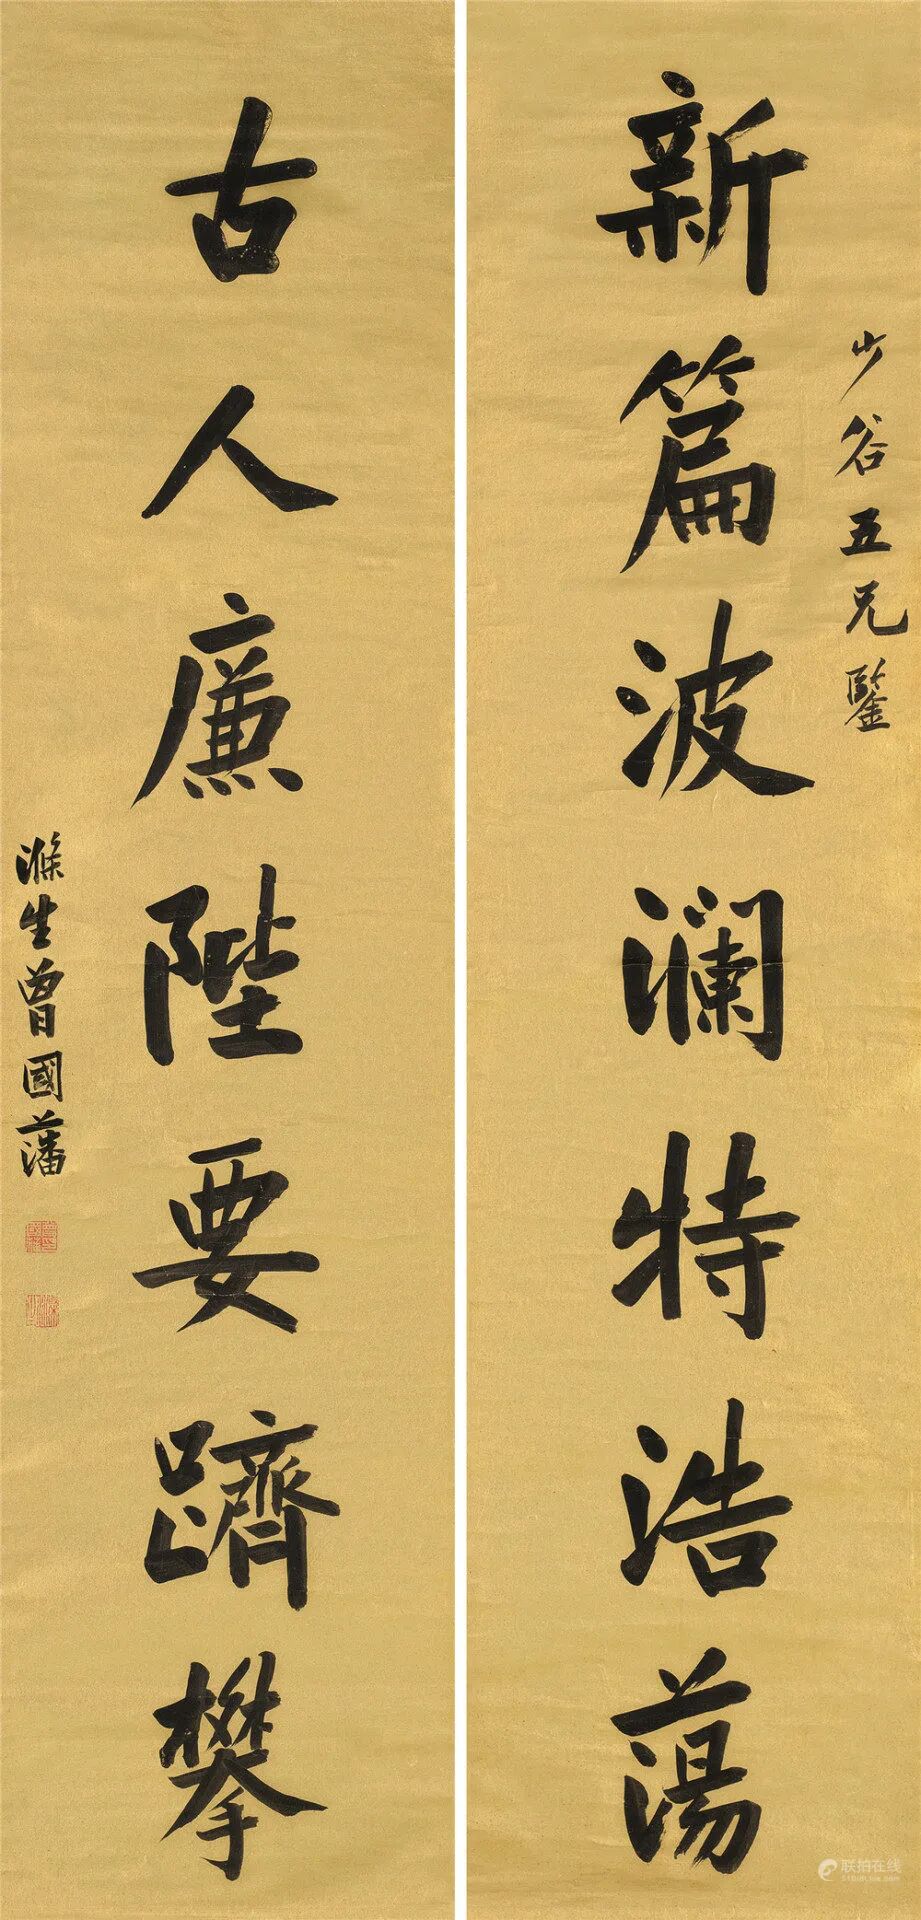 少谷五兄鑒
新篇波瀾特浩蕩
古人廉陛要躋攀
滌生曾國藩
联拍在线